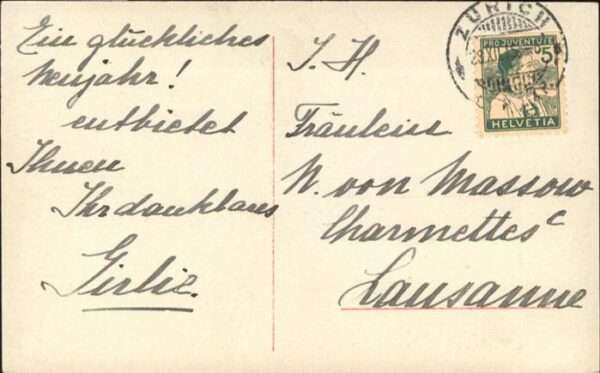 Ein glückliches
Neujahr!
entbietet
Ihnen
Ihr dankbares
Girlie.
I. H.
Fräulein
W. von Massow
Charmettes
Lausanne
ZÜRICH
PRO JUVENTUTE
5
HELVETIA